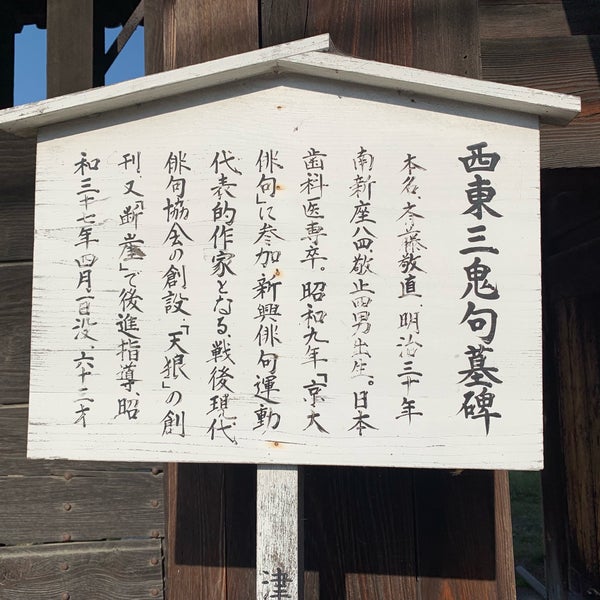 西東三鬼句墓碑
本名、斎藤敬直、明治三十年
南新座八四敬止四男出生。日本
歯科医専卒。昭和九年「京大
俳句」に参加、新興俳句運動
代表的作家となる、戦後現代
俳句協会の創設、「天狼」の創
刊、又「断崖」で後進指導、昭
和三十七年四月一日没、六十三才
津